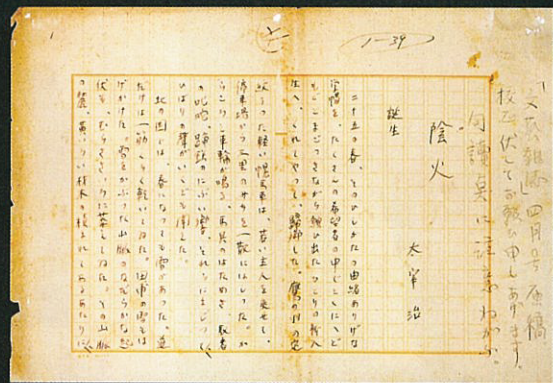 「文藝雑誌」四月号原稿
校正伏してお願ひ申しあげます。
1—39
七
陰火
太宰治
誕生
二十五の春、そのひしがたの由緒ありげな
学帽を、たくさんの希望者の中でとくにへど
もどまごつきながら願ひ出たひとりの新入
生へ、くれてやつて、帰郷した。鷹の羽の定
紋うつた軽い幌馬車は、若い主人を乗せて、
停車場から三里のみちを一散にはしつた。か
らころと車輪が鳴る、馬具のはためき、馭者
の叱咤、蹄鉄のにぶい響、それらにまじつて、
ひばりの声がいくども聞えた。
北の国では、春になつても雪があつた。道
だけは一筋くろく乾いてゐた。田圃の雪もは
げかけた。雪をかぶつた山脈のなだらかな起
伏も、むらさきいろに萎えてゐた。その山脈
の麓、黄いろい材木の積まれてあるあたりに